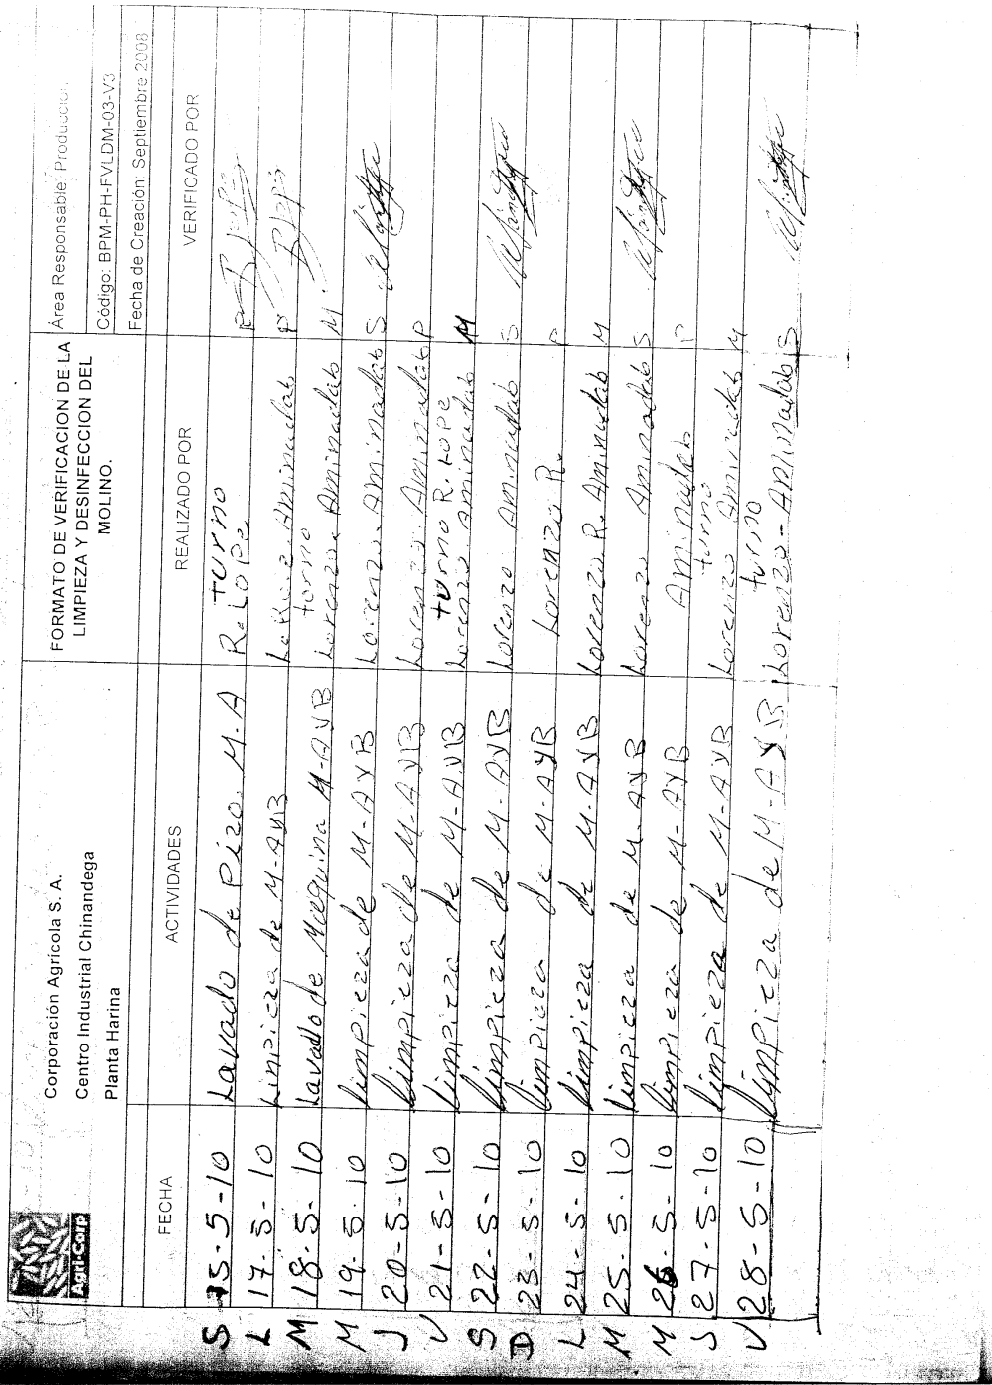 Agri-Corp
Corporación Agrícola S. A.
Centro Industrial Chinandega
Planta Harina
FORMATO DE VERIFICACION DE LA
LIMPIEZA Y DESINFECCION DEL
MOLINO.
Área Responsable: Producción
Código: BPM-PH-FVLDM-03-V3
Fecha de Creación: Septiembre 2008
FECHA ACTIVIDADES REALIZADO POR VERIFICADO POR
turno
S 15-5-10 Lavado de Pizo. M.A R. LOPE
L 17-5-10 Limpieza de M-AYB Aminadab P
turno
M 18-5-10 Lavado de Maquina M-AYB Lorenzo Aminadab M
M 19-5-10 limpieza de M-AYB Lorenzo Aminadab S
J 20-5-10 limpieza de M-AYB Lorenzo Aminadab P
turno R. LOPE
V 21-5-10 limpieza de M-AYB Lorenzo Aminadab M
S 22-5-10 limpieza de M-AYB Lorenzo Aminadab S
D 23-5-10 limpieza de M-AYB Lorenzo R. P
L 24-5-10 limpieza de M-AYB Lorenzo R. Aminadab M
M 25-5-10 limpieza de M-AYB Lorenzo Aminadab S
M 26-5-10 limpieza de M-AYB Aminadab P
turno
J 27-5-10 limpieza de M-AYB Lorenzo Aminadab M
turno
V 28-5-10 limpieza de M-AYB Lorenzo-Aminadab S